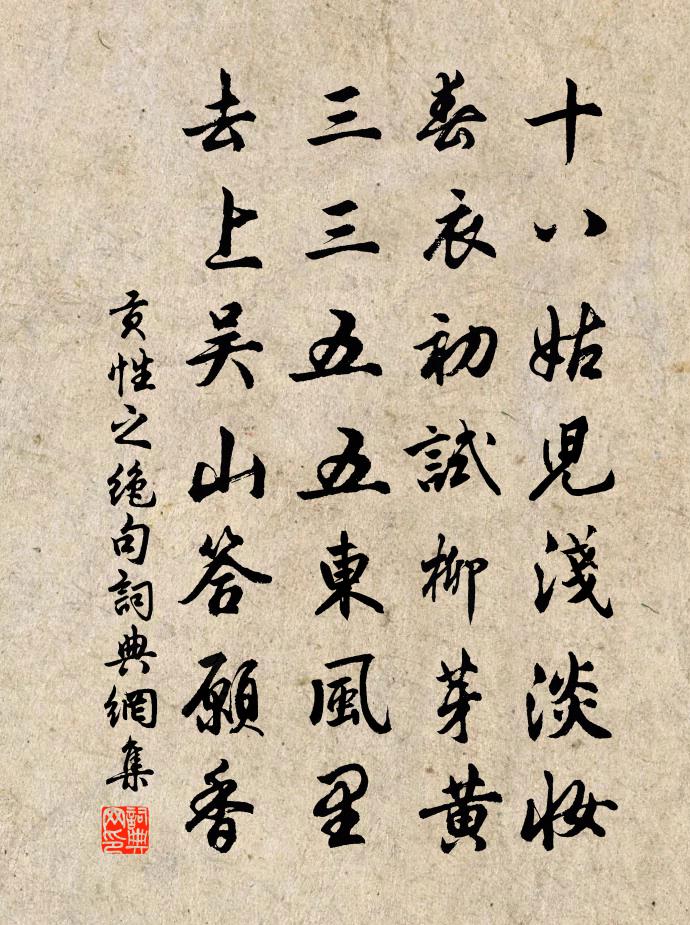 十八姑兒淺淡妝
春衣初試柳芽黃
三三五五東風里
去上吴山答願香
貢性之絶句詞典網集
詞典网印